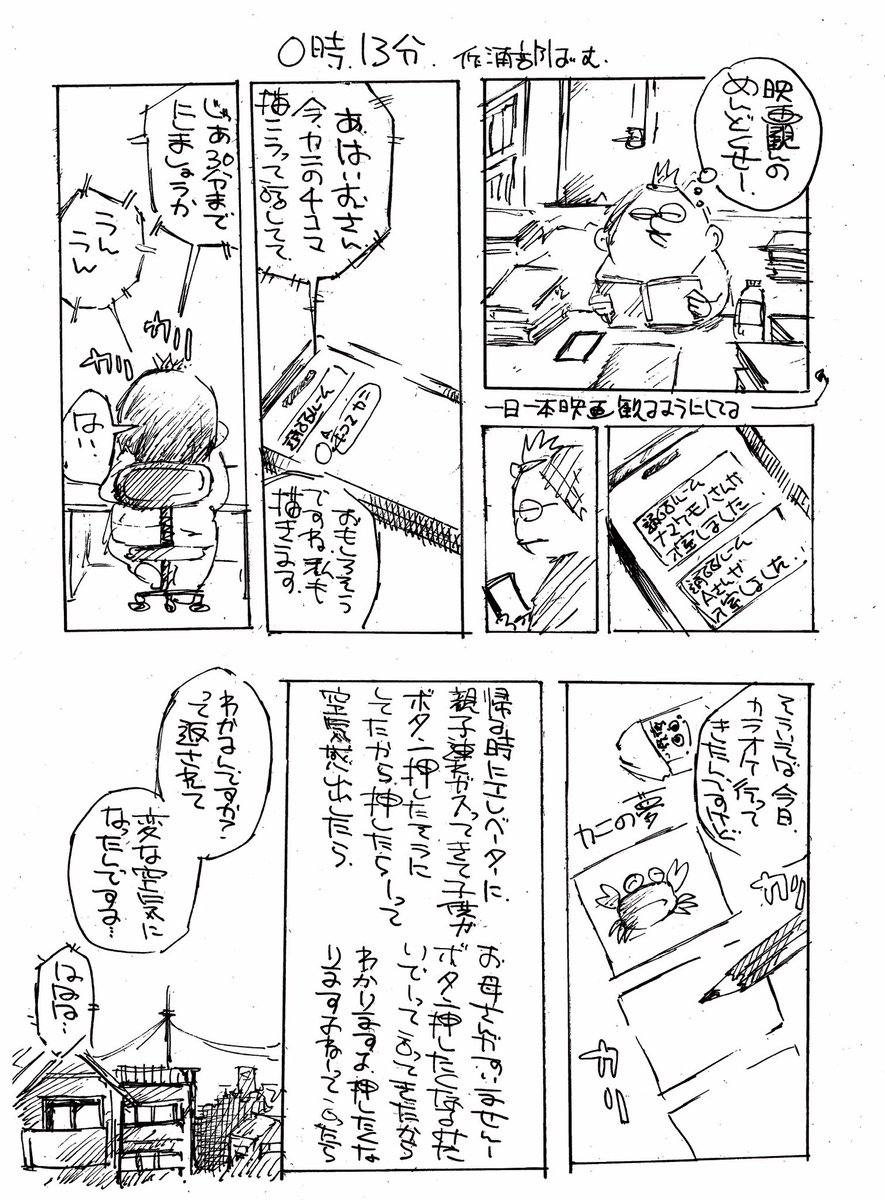 0時13分.
映画観んの
めんどくせー.
一日一本映画観るようにしてる
通話ルーム
ナマケモノさんが
入室しました
通話ルーム
Aさんが
入室しました.
あ.はいむさん.
今.カニの4コマ
描こうって話してて.
通話ルーム
4コマ カニ
おもしろそっ
ですね 私も
描きます.
じゃあ30分まで
にしましょうか
うん
うん
カリ
カリ
はい.
そういえば今日.
カラオケ行って
きたんですけど
カニの夢
カリ
チラ
帰る時にエレベーターに.
親子連れが入ってきて子供が
ボタン押したそうに
してたから.押したらーって
空気感出したら.
お母さんがすいませんー
ボタン押したくなるみた
いでーって言ってきたから
わかりますよ.押したくな
りますよねーって言ったら
わかるんですか?
って返されて
変な空気に
なったんですよ..
ははは..